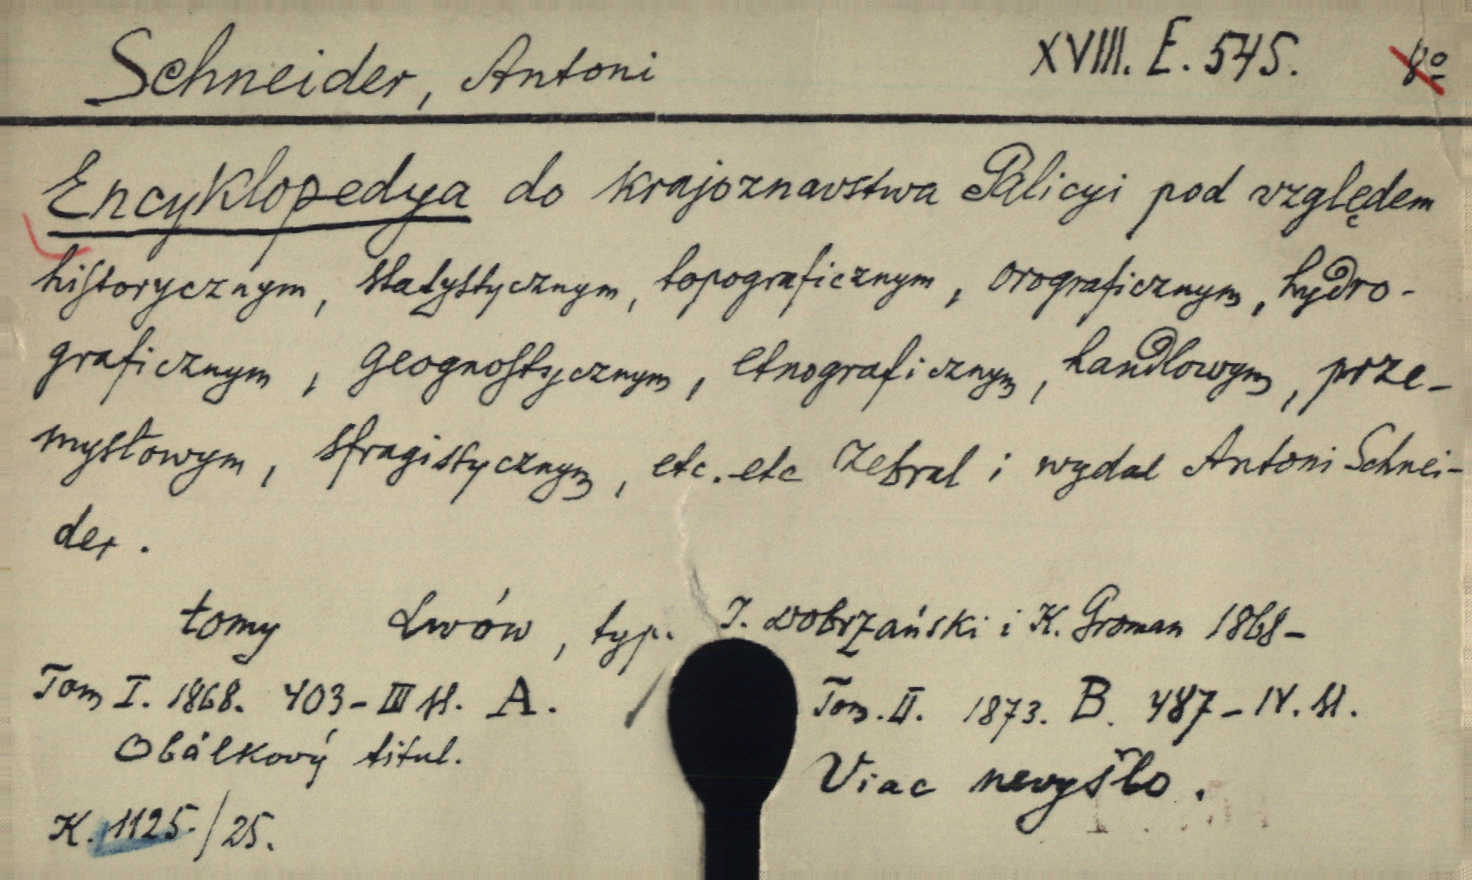 Schneider, Antoni XVIII. E. 545. 8º
Encyklopedya do krajoznavstwa Galicyi pod względem
historycznym, statystycznym, topograficznym, orograficznym, hydro-
graficznym, geognostycznym, etnograficznym, handlowym, prze-
mysłowym, sfragistycznym, etc. etc zebral i wydal Antoni Schnei-
der.
tomy Lwów, typ. I. Dobrzański i K. Groman 1868-
Tom I. 1868. 403-III st. A. Tom. II. 1873. B. 487-IV. st.
Obálkový titul. Viac nevyšlo.
K. 1125./25.